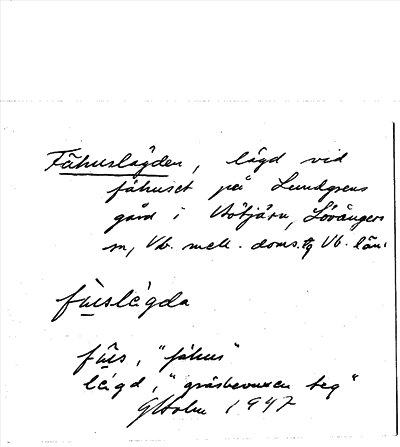 Fähuslägden, lägd vid
fähuset på Lundgrens
gård i Bötjärn, Lövångers
sn, Vb. mell. doms. tg Vb. län.
fùi̯slègda
fu̯i̯s, "fähus"
lèi̯gd, "gräsbevuxen teg"
GHolm 1947